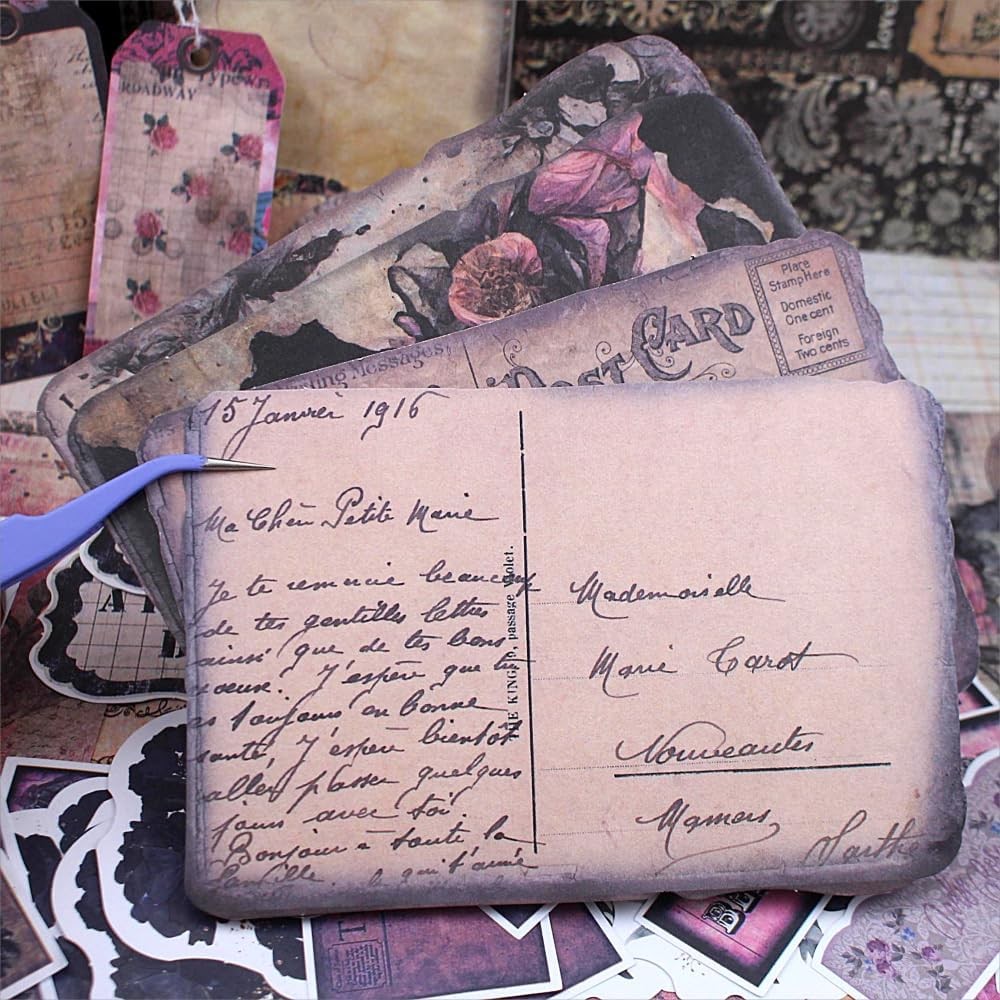 Typews
ROADWAY
Love
Place
Stamp Here
Domestic
One cent
Foreign
Two cents
Post Card
Messages
15 Janvier 1916
Ma Chère Petite Marie
Je te remercie beaucoup
de tes gentilles lettres
ainsi que de tes bons
voeux. J'espère que tu
es toujours en bonne
santé, J'espère bientôt
aller passer quelques
jours avec toi.
Bonjour à toute la
famille. qui t'aime
THE KING, passage Violet.
Mademoiselle
Marie Carot
Nouveautés
Mamers
Sarthe